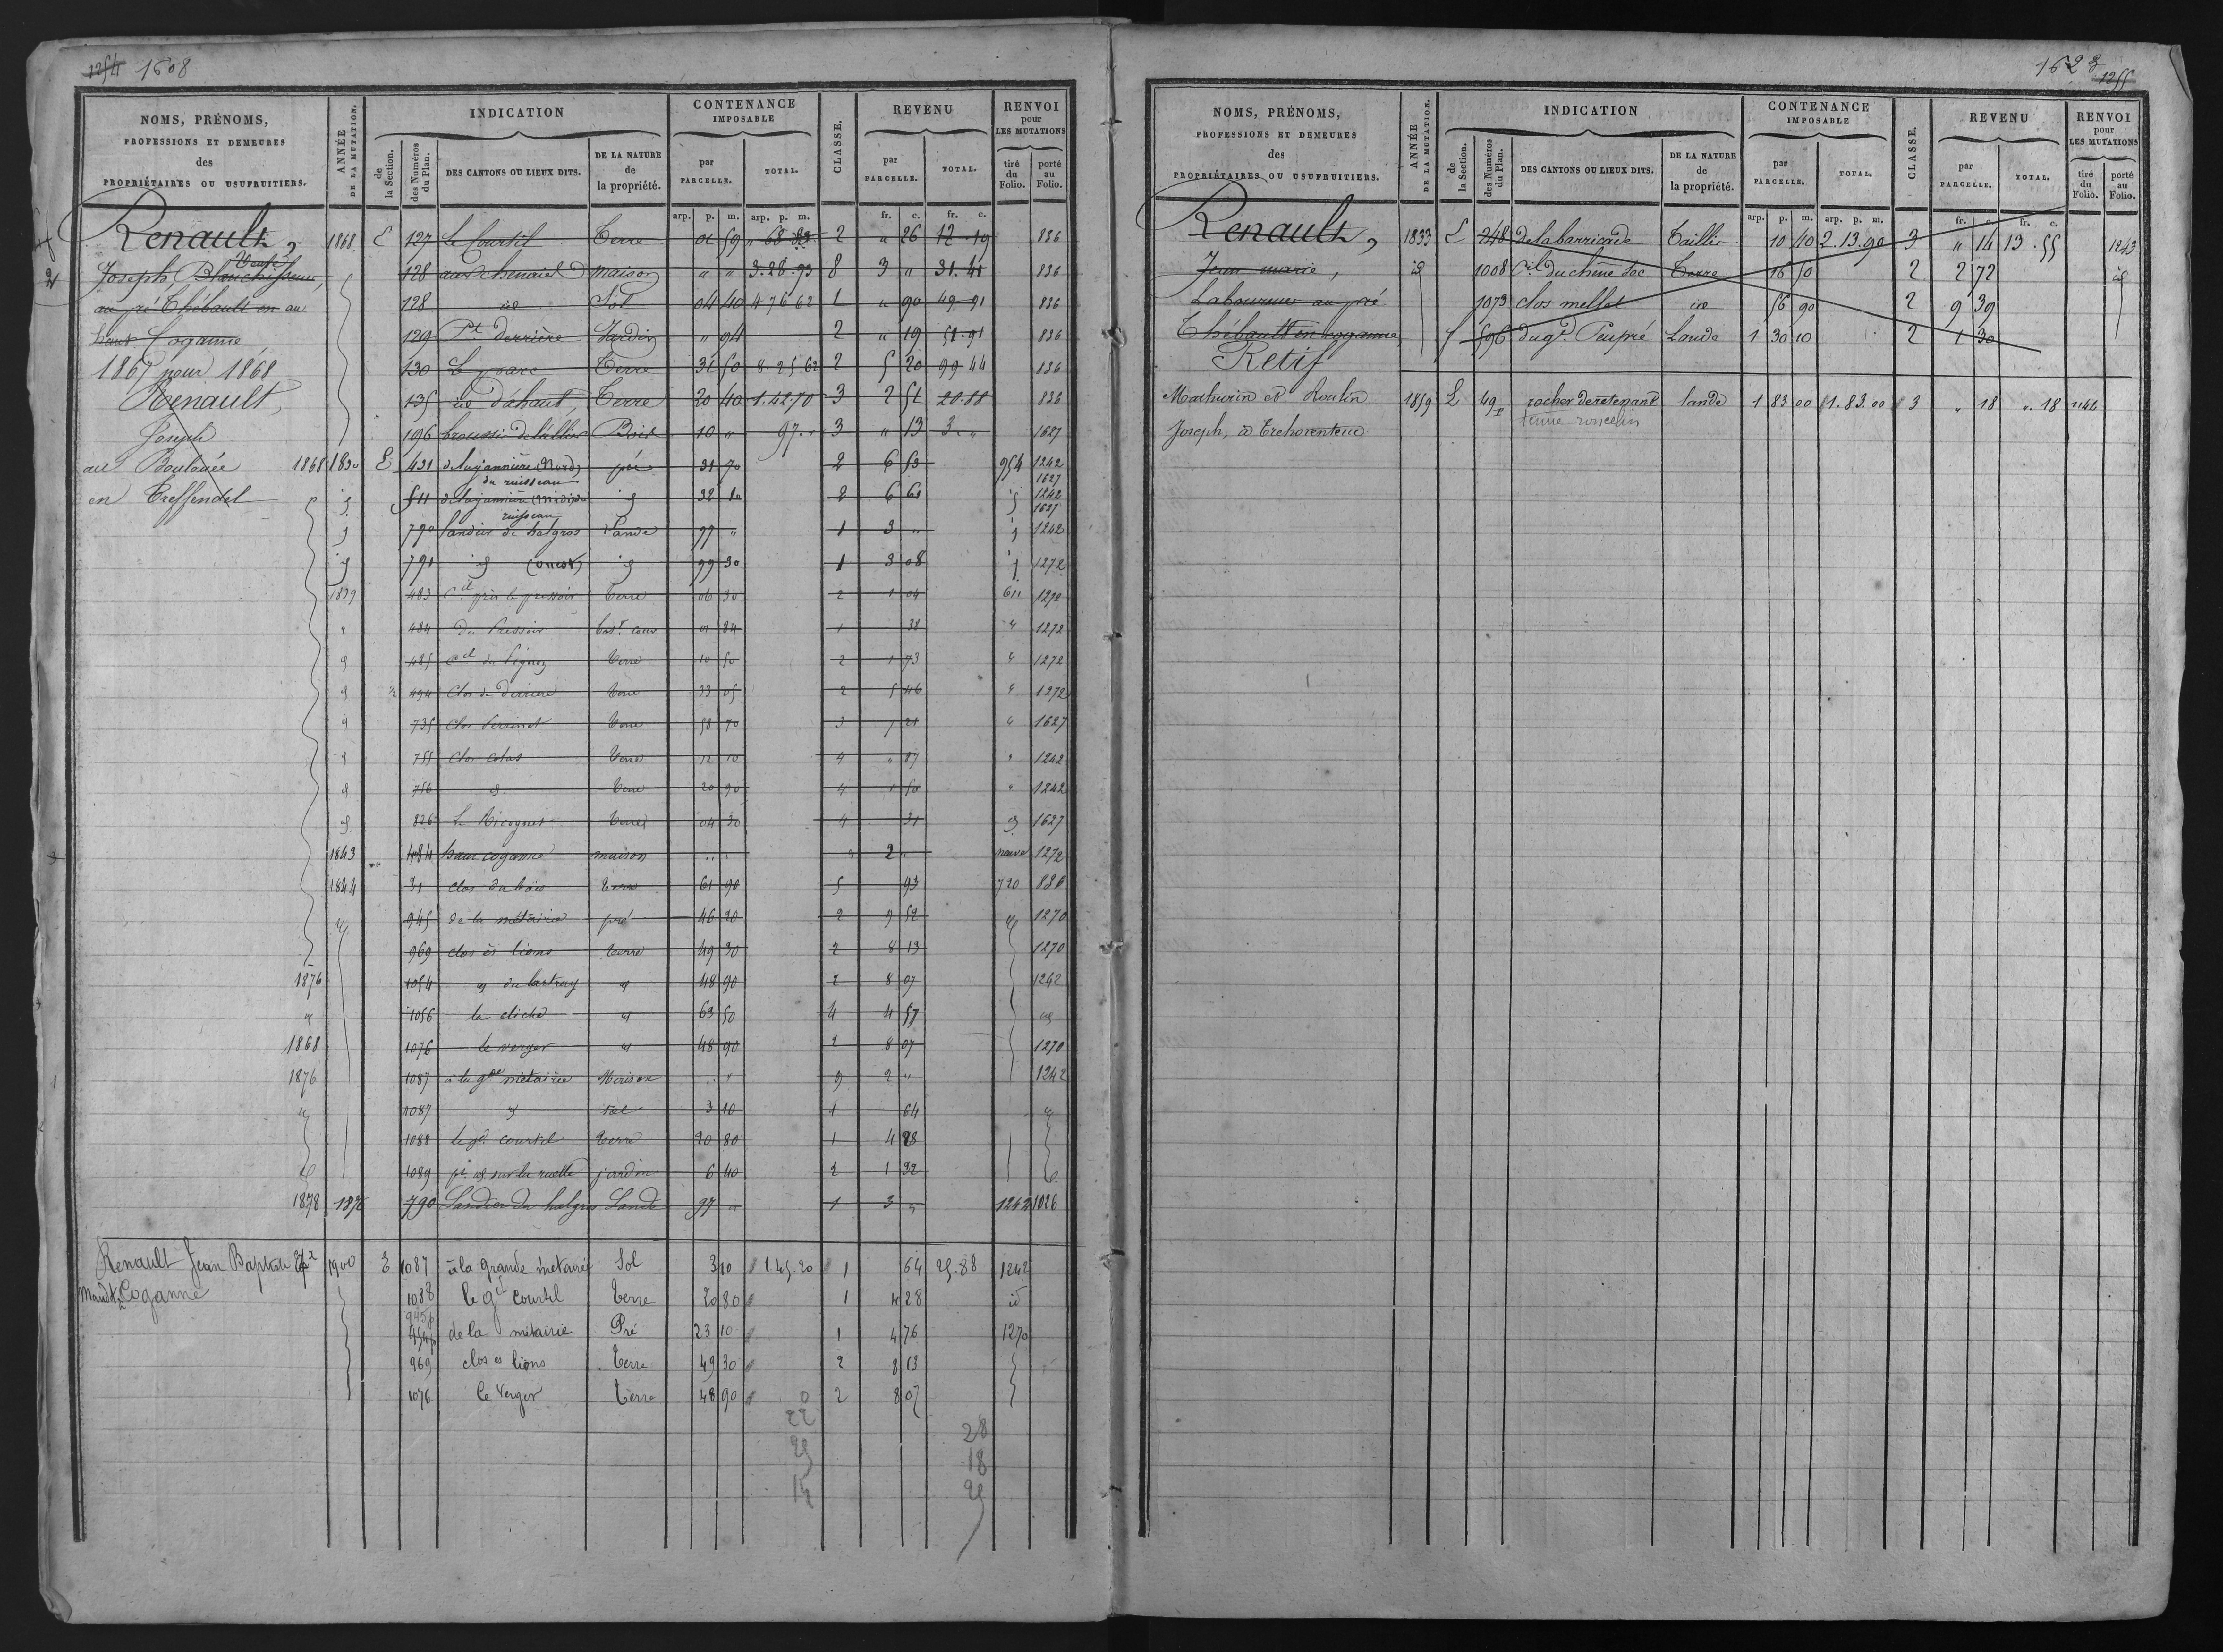 1254 1608
NOMS, PRÉNOMS, PROFESSIONS ET DEMEURES des PROPRIÉTAIRES OU USUFRUITIERS.
ANNÉE DE LA MUTATION.
INDICATION
de la Section.
des Numéros du Plan.
DES CANTONS OU LIEUX DITS.
DE LA NATURE de la propriété.
CONTENANCE IMPOSABLE
par PARCELLE.
TOTAL.
CLASSE.
REVENU
par PARCELLE.
TOTAL.
RENVOI pour LES MUTATIONS
tiré du Folio.
porté au Folio.
arp. p. m. arp. p. m. fr. c. fr. c.
Renault, 1868 E 127 Le Courtil Terre 01 59 " 68 83 2 " 26 12 19 836
Joseph 128 maison " " 3.28.93 8 3 " 31.41 836
au pré Thébault en au 128 id Sol 04 40 4 76 62 1 " 90 49 91 836
haut Coganne 129 Pt derrière Jardin " 94 2 " 19 51.91 836
1867 pour 1868 130 Le parc Terre 31 50 8 25 62 2 5 20 99 44 836
Renault, 135 id d'àhaut, Terre 20 40 1.42.70 3 2 51 20.88 836
Joseph 196 Bois 10 " 97 " 3 " 13 3 " 1627
au Boulouée 1868 1830 E 431 delajannière (Nord) du ruisseau pré 31 70 2 6 53 954 1242 1627
en Treffendel id 511 delajannière (midi) du ruisseau id 32 10 2 6 61 id 1242 1627
id 790 landier de halgros Lande 97 " 1 3 " id 1242
id 791 id id 99 30 1 3 08 id 1272
1839 483 Ctil près le pressoir Terre 06 30 2 1 04 611 1272
" 484 Du Pressoir 01 84 1 38 " 1272
id 485 Terre 10 50 2 1 73 " 1272
id 494 Clos de Derrière Terre 33 05 2 5 46 " 1272
id 735 Clos Perrinet Terre 58 70 3 7 21 " 1627
id 755 Clos colas Terre 12 10 4 " 87 " 1242
id 756 id Terre 20 90 4 1 50 " 1242
id 826 Terre 04 30 4 31 id 1627
1843 484 haut coganne maison " " 2 " neuve 1272
1844 31 clos du bois terre 61 90 5 93 720 836
id 945 de la métairie pré 46 20 2 9 52 id 1270
969 clos ès lions terre 49 30 2 8 13 1270
1876 1054 id 48 90 2 8 07 1242
id 1056 la cliche id 63 50 4 4 57 id
1868 1076 le verger id 48 90 2 8 07 1270
1876 1087 à la gde métairie Maison " " 9 2 " 1242
id 1087 id sol 3 10 1 64 id
1088 le gd courtil terre 20 80 1 4 28
1089 pt id sur la ruelle jardin 6 40 2 1 32
1878 1876 790 Landier du halgros Lande 97 " 1 3 " 1242 1026
Renault Jean Baptiste 1900 E 1087 à la grande métairie Sol 3 10 1 45.20 1 64 25.88 1242
Coganne 1088 le gd courtil Terre 20 80 1 4 28 id
945p de la métairie Pré 23 10 1 4 76 1270
969 clos es lions Terre 49 30 2 8 13
1076 le verger Terre 48 90 2 8 07
0
22 28
25 18
14 25
1628 1255
NOMS, PRÉNOMS, PROFESSIONS ET DEMEURES des PROPRIÉTAIRES OU USUFRUITIERS.
ANNÉE DE LA MUTATION.
INDICATION
de la Section.
des Numéros du Plan.
DES CANTONS OU LIEUX DITS.
DE LA NATURE de la propriété.
CONTENANCE IMPOSABLE
par PARCELLE.
TOTAL.
CLASSE.
REVENU
par PARCELLE.
TOTAL.
RENVOI pour LES MUTATIONS
tiré du Folio.
porté au Folio.
arp. p. m. arp. p. m. fr. c. fr. c.
Renault, 1833 E 248 delabarriande Taillis 10 40 2.13.90 3 " 14 13.55 1243
Jean marie, id 1008 Ctil du chêne sec Terre 16 50 2 2 72 id
Laboureur au pré 1073 clos mellet id 56 90 2 9 39
Thébault en coganne 596 dugd Peupré Lande 1 30 10 2 1 30
Retif
Mathurin & Roulin 1859 L 49p rocher deretenant lande 1 83 00 1.83.00 3 " 18 ". 18 1146
Joseph, à Trehorenteuc